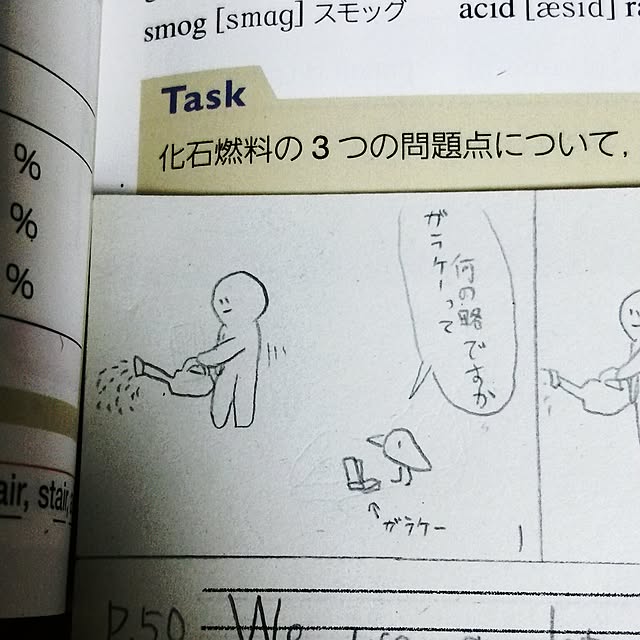 smog [smɑg] スモッグ
acid [æsid]
Task
化石燃料の3つの問題点について,
%
%
%
air, stair,
ガラケーって
何の略ですか
ガラケー
1
P.50 We